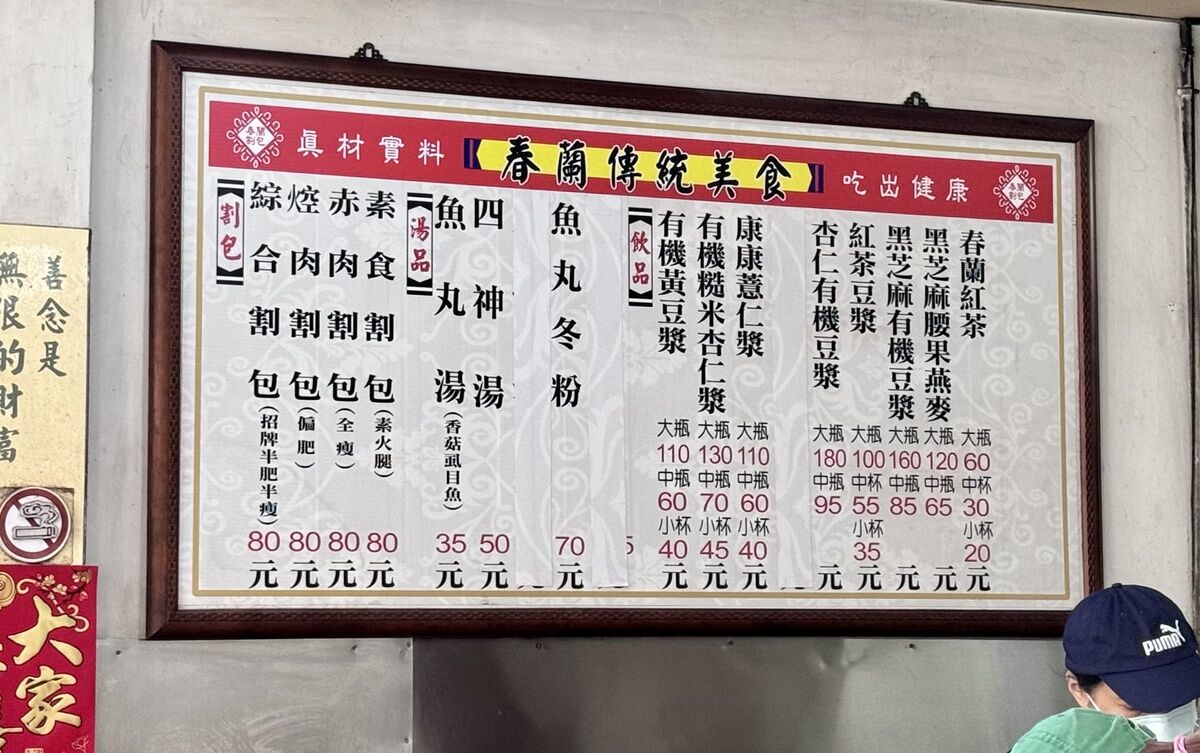 春蘭割包
真材實料
春蘭傳統美食
吃出健康
春蘭割包
【割包】
綜合割包(招牌半肥半瘦) 80元
焢肉割包(偏肥) 80元
赤肉割包(全瘦) 80元
素食割包(素火腿) 80元
【湯品】
魚丸湯(香菇虱目魚) 35元
四神湯 50元
魚丸冬粉 70元
【飲品】
有機黃豆漿 大瓶 110 中瓶 60 小杯 40元
有機糙米杏仁漿 大瓶 130 中瓶 70 小杯 45元
康康薏仁漿 大瓶 110 中瓶 60 小杯 40元
杏仁有機豆漿 大瓶 180 中瓶 95 元
紅茶豆漿 大瓶 100 中瓶 55 小杯 35元
黑芝麻有機豆漿 大瓶 160 中瓶 85 元
黑芝麻腰果燕麥 大瓶 120 中瓶 65 元
春蘭紅茶 大瓶 60 中杯 30 小杯 20元
善念是
無限的財富
大家
PUMA